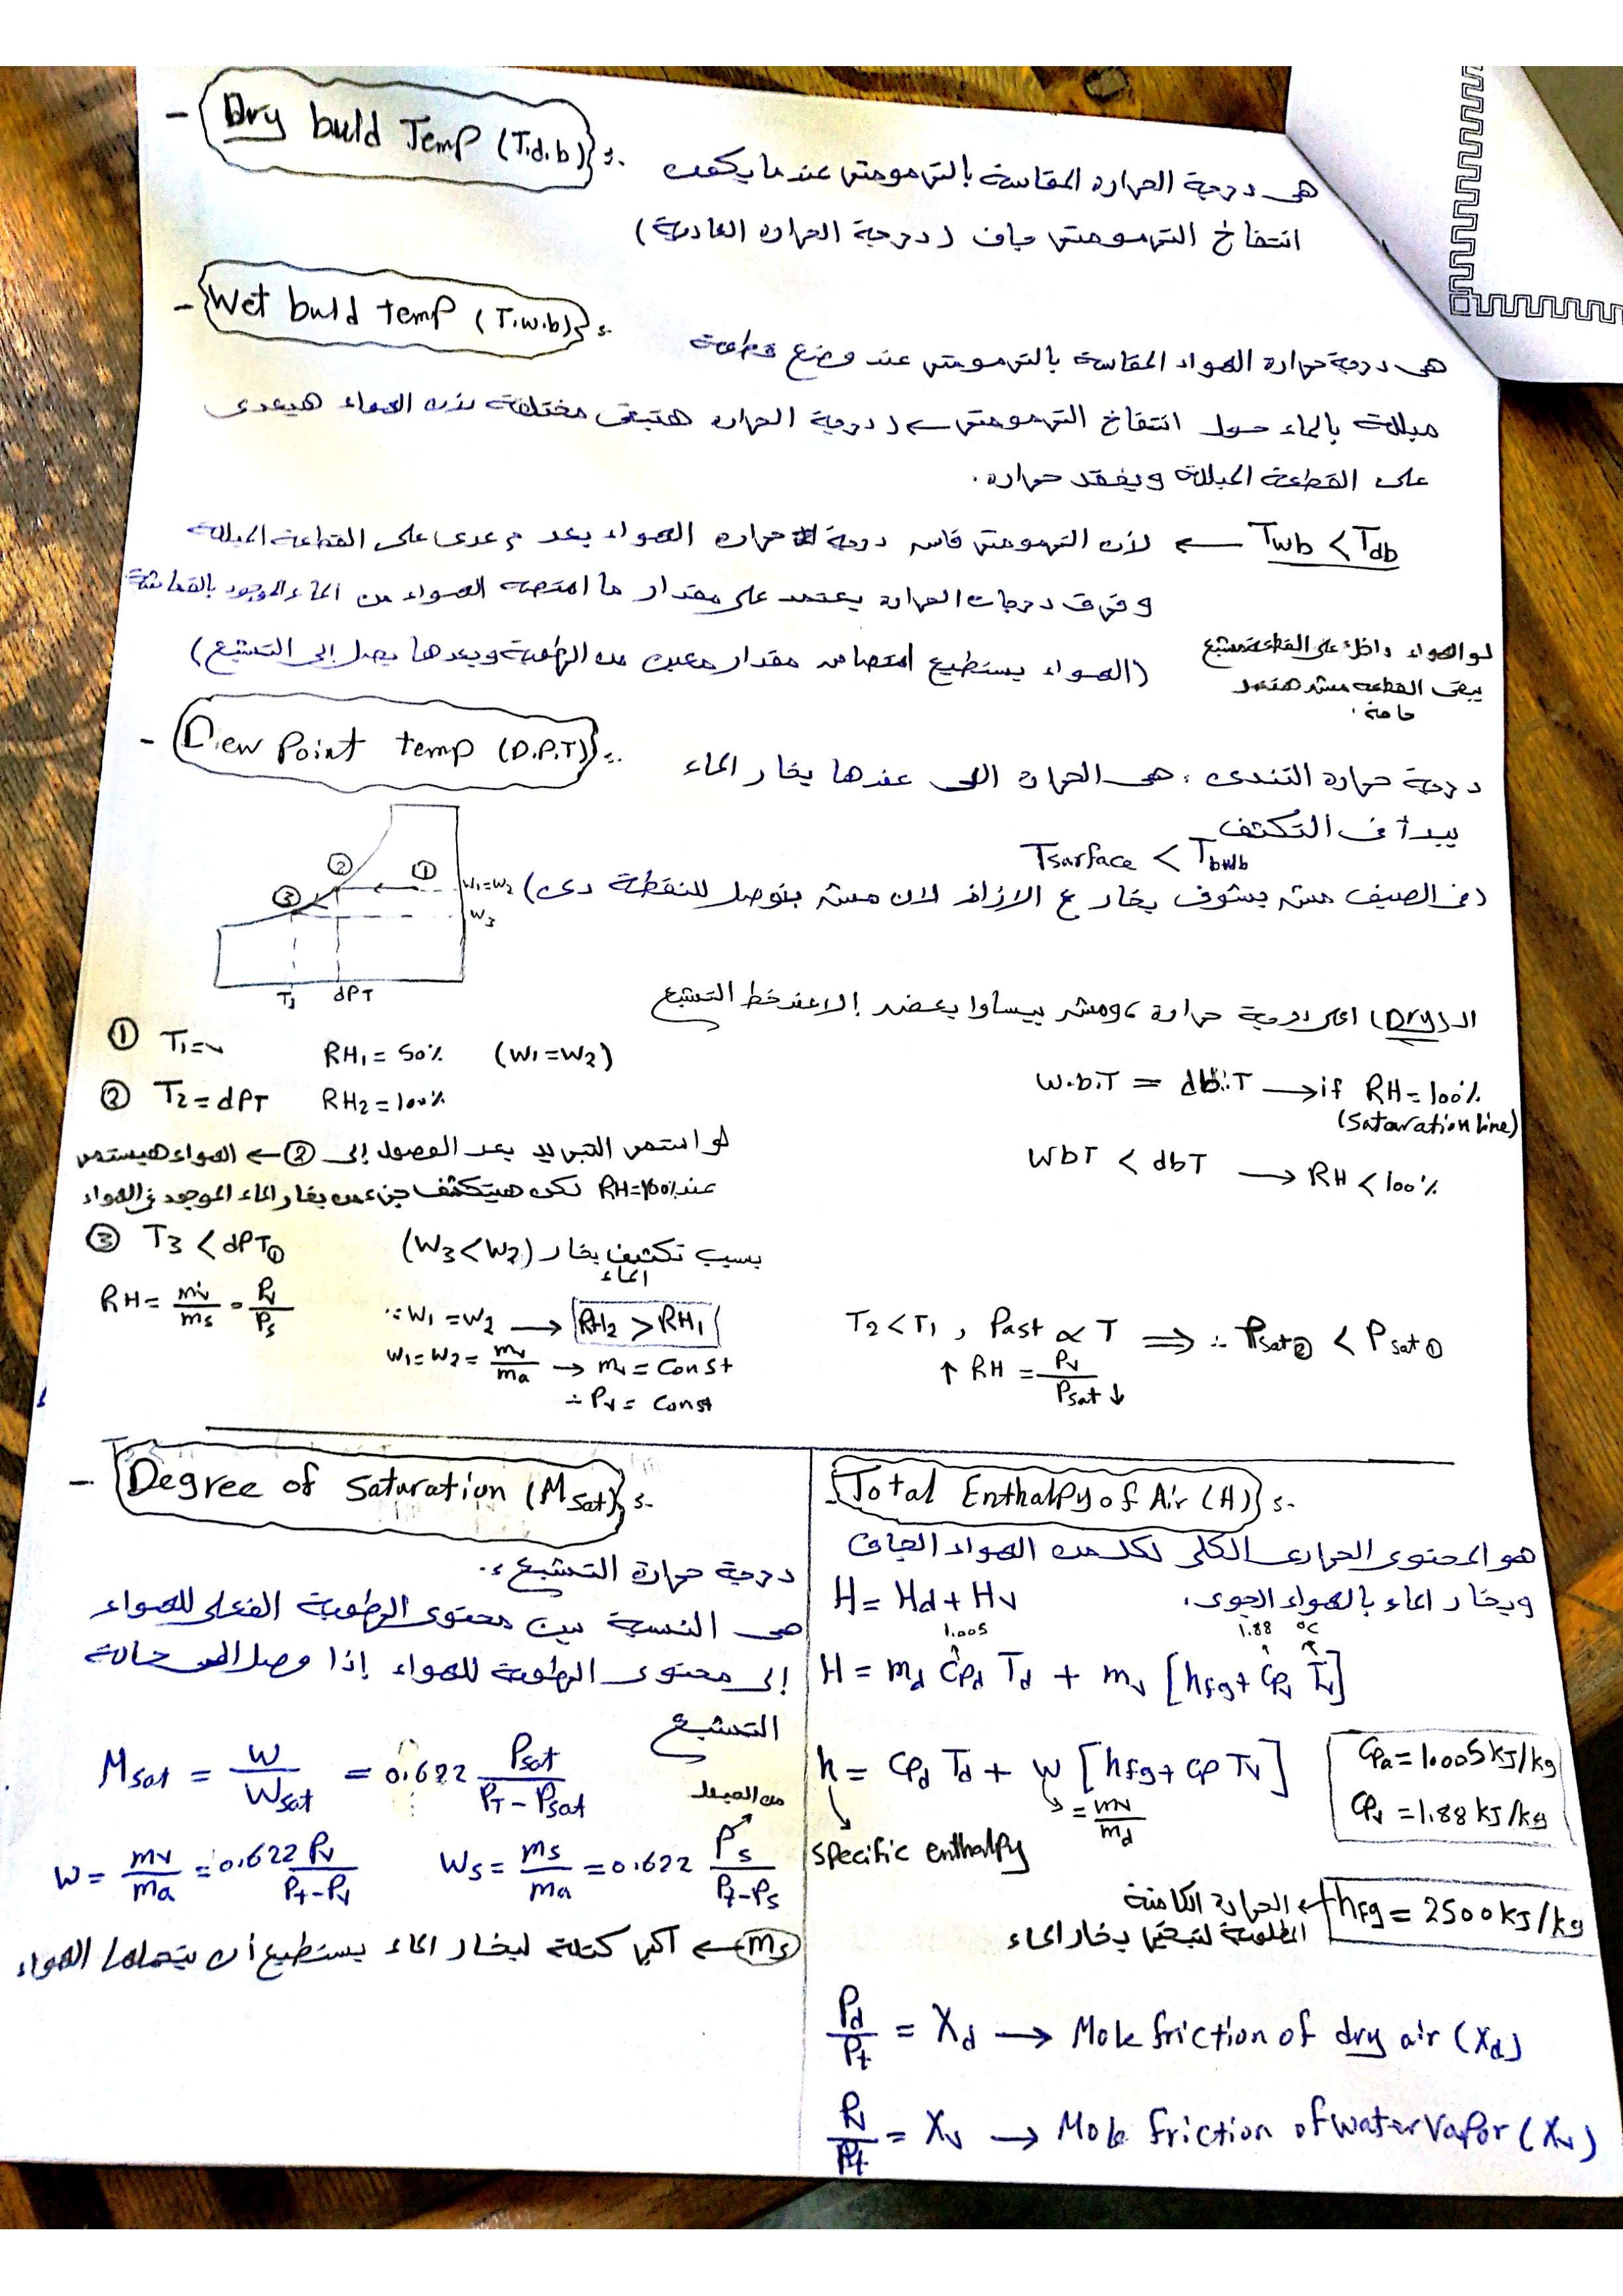 - Dry buld Temp (T.d.b) :-
هى درجة الحرارة المقاسة بالترمومتر عندما يكون
انتفاخ الترمومتر جاف (درجة الحرارة العادية)
- Wet buld temp (T.w.b) :-
هى درجة حرارة الهواء المقاسة بالترمومتر عند وضع قطعة
مبللة بالماء حول انتفاخ الترمومتر ← (درجة الحرارة هتبقى مختلفة لأن الهواء هيعدى
على القطعة المبللة ويفقد حرارة.
Twb < Tdb ← لأن الترمومتر قاس درجة حرارة الهواء بعد م عدى على القطعة المبللة
وفرق درجات الحرارة يعتمد على مقدار ما امتصه الهواء من الماء الموجود بالقماشة
(الهواء يستطيع امتصاص مقدار معين من الرطوبة وبعدها يصل إلى التشبع)
لو الهواء داخل على القطعة متشبع
يبقى القطعة مش هتعمل
حاجة.
- Dew Point temp (D.P.T) :-
درجة حرارة التندى : هى الحرارة اللى عندها بخار الماء
يبدأ فى التكثف
Tsurface < Tbulb
(فى الصيف مش بشوف بخار ع الازاز لان مش بنوصل للنقطة دى)
① ② ③
W1=W2
W3
T3 dPT
الـ (Dry) اعلى درجة حرارة ، ومش بيساوا بعض إلا عند خط التشبع
① T1=✓ RH1 = 50% (W1=W2)
② T2 = dPT RH2 = 100%
w.b.T = db.T → if RH=100%
(Sataration line)
WbT < dbT → RH < 100%
لو استمر التبريد بعد الوصول إلى ② ← الهواء هيستمر
عند RH=100% لكن هيتكثف جزء من بخار الماء الموجود فى الهواء
③ T3 < dPT① (W3<W2) بسبب تكثيف بخار
الماء
RH = mv/ms = Pv/Ps
∵ W1 = W2 → RH2 > RH1
W1=W2 = mv/ma → mv = Const
∴ Pv = Const
T2 < T1 , Past ∝ T ⟹ ∴ Psat② < Psat①
↑ RH = Pv/Psat ↓
- Degree of Saturation (Msat) :-
درجة حرارة التشبع :-
هى النسبة بين محتوى الرطوبة الفعلى للهواء
إلى محتوى الرطوبة للهواء إذا وصل إلى حالة
التشبع
Msat = W/Wsat = 0.622 Psat/(PT - Psat)
من الجدول
W = mv/ma = 0.622 Pv/(Pt-Pv) Ws = ms/ma = 0.622 Ps/(Pt-Ps)
ms ← أكبر كتلة لبخار الماء يستطيع أن يتحملها الهواء
- Total Enthalpy of Air (H) :-
هو المحتوى الحرارى الكلى لكل من الهواء الجاف
وبخار الماء بالهواء الجوى.
H = Hd + Hv
1.005 1.88 °C
H = md Cpd Td + mv [hfg + Cpv Tv]
h = Cpd Td + W [hfg + Cp Tv]
= mv/md
specific enthalpy
Cpa = 1.005 kJ/kg
Cpv = 1.88 kJ/kg
hfg = 2500 kJ/kg ← الحرارة الكامنة
المطلوبة لتبخير بخار الماء
Pd/Pt = Xd → Mole friction of dry air (Xd)
Pv/Pt = Xv → Mole friction of water Vapor (Xv)